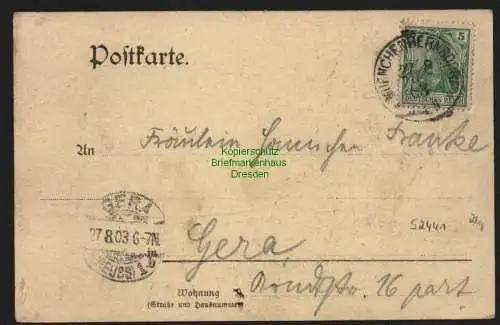 5
DEUTSCHES REICH
MUENCHENBERNSDORF
27 8
Postkarte.
Fräulein Hannchen Franke
An
Kopierschutz
Briefmarkenhaus
Dresden
GERA
27.8.03.6-7N.
(REUSS) 1
52441
Gera,
16 part
Wohnung
(Straße und Hausnummer)